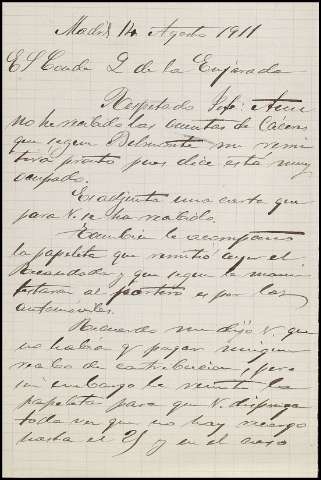 Madrid 14 Agosto 1911
El Conde D de la Enjarada
Respetado Jefe: Aun
no he recibido las cuentas de Cáceres
que segun Belmonte me remi
tirá pronto pues dice está muy
ocupado.
Es adjunta una carta que
para V. se ha recibido.
Tambien le acompaño
la papeleta que remitió ayer el
Recaudador y que segun le manifes
taron al portero es por los
automóviles.
Recuerdo me dijo V. que
no habia q pagar ningun
recibo de contribucion, pero
sin embargo le remito la
papeleta para que V. disponga
toda vez que no hay recargo
hasta el 25 y en el caso